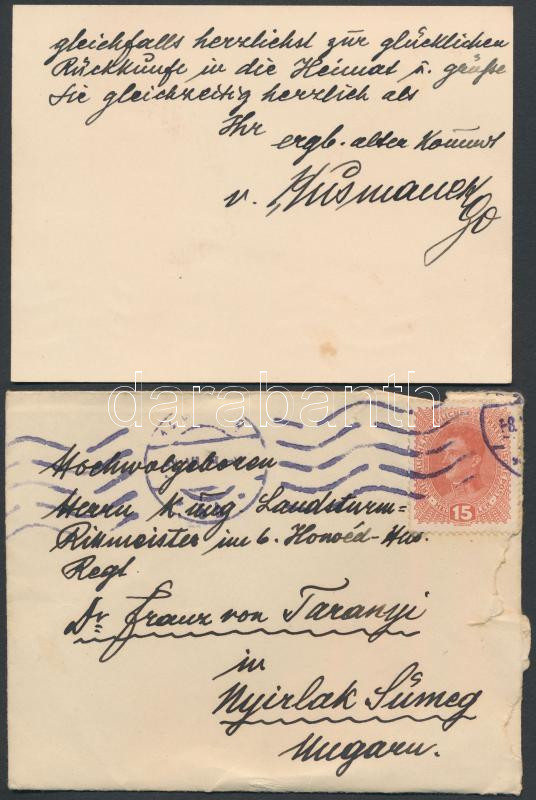 gleichfalls herzlichst zur glücklichen
Rückkunft in die Heimat u. grüße
Sie gleichzeitig herzlich als
Ihr
ergb. alter Kommdt
v. Kusmanek
darabanth
15
Hochwolgeboren
Herrn K. ung Landsturm=
Rittmeister im 6. Honvéd-Hus.
Regt
Dr. Franz von Taranyi
in
Nyirlak Sümeg
Ungarn.